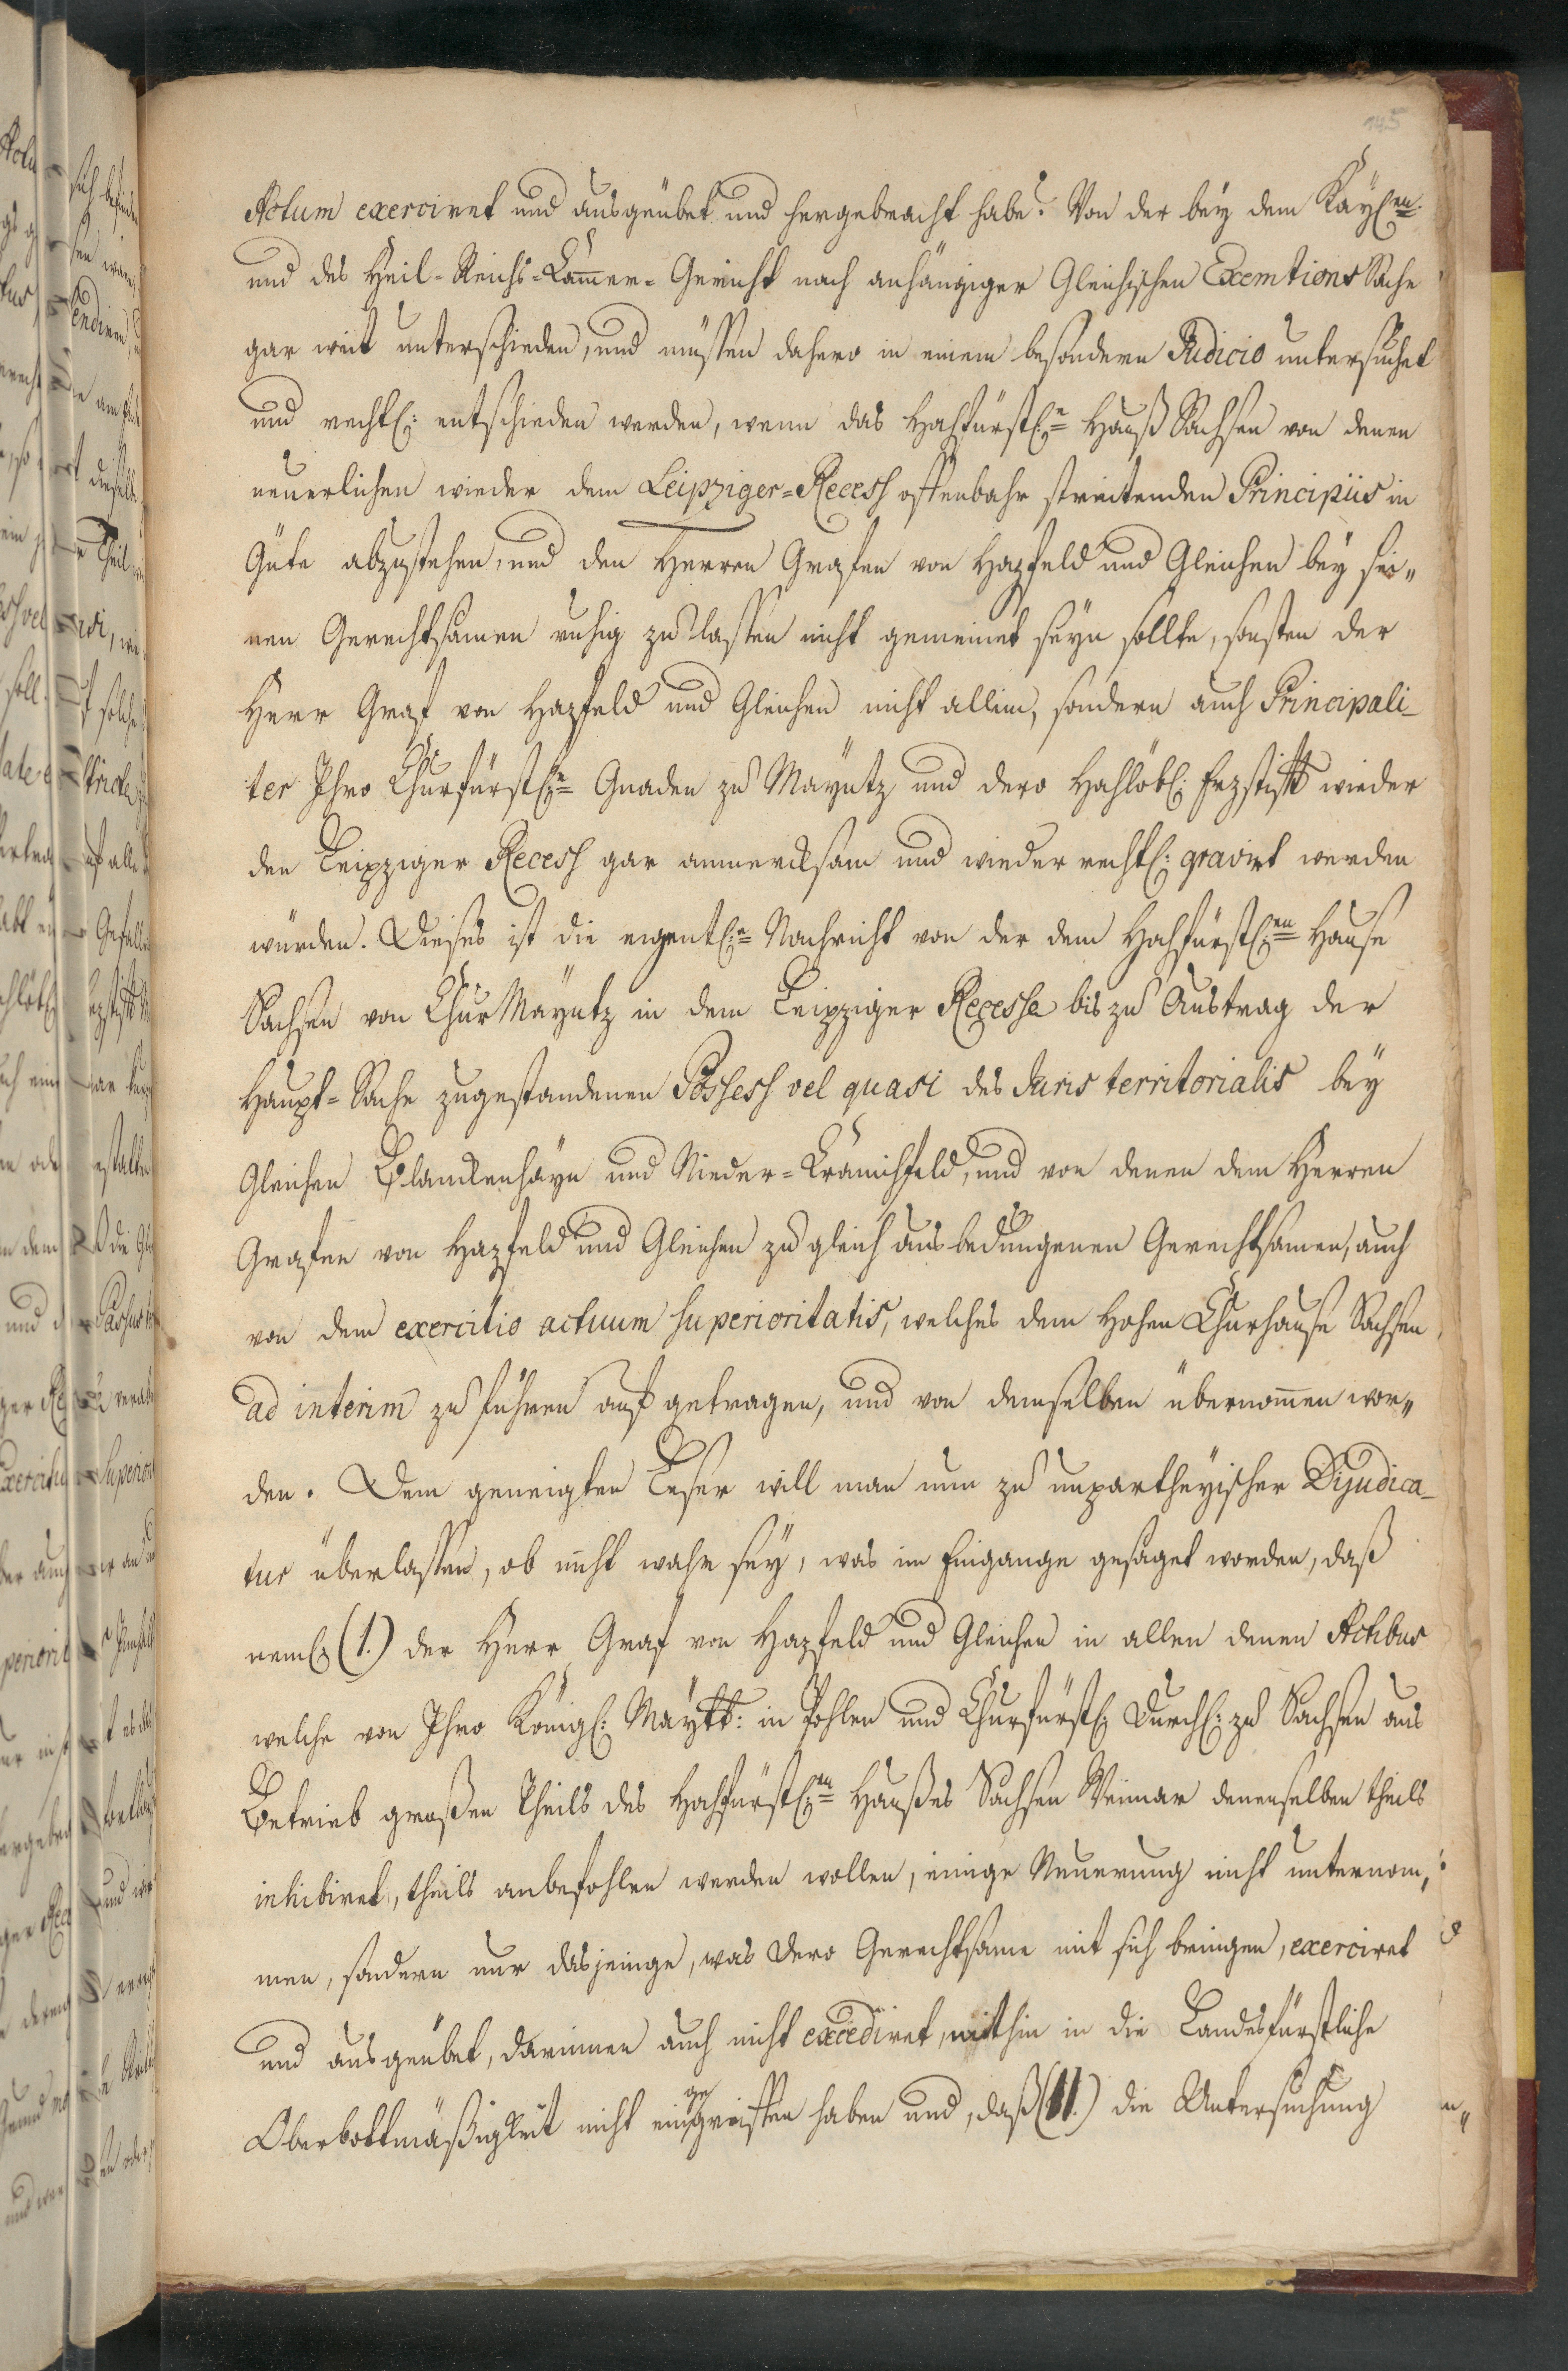 145
Actum exerciret und ausgeübet und hergebracht habe? Von der bey dem Käyßen.
und des Heil-Reichs-Cam̅er-Gericht noch anhängiger Gleichischen Exemtions Sache
gar weit unterschieden, und müssen dahero in einem besondern Judicio untersuchet
und rechtl: entschieden werden, wenn das Hochfürstl:e Hauß Sachsen von denen
neuerlichen wieder dem Leipziger-Recess offenbahr streitenden Principiis in
Güte abzustehen, und den Herren Grafen von Hazfeld und Gleichen bey sei„
nen Gerechtsamen ruhig zu lassen nicht gemeinet seyn sollte, sonsten der
Herr Graf von Hazfeld und Gleichen nicht allein, sondern auch Principali-
ter Ihro Churfürstl:e Gnaden zu Mayntz und dero Hochlöbl: Erzstifft wieder
den Leipziger Recess gar anmercksam und wieder rechtl: gravirt werden
würden. Dieses ist die eigentl:e Nachricht von der dem Hochfürstl:en Hause
Sachsen von Chur Mayntz in dem Leipziger Recesse bis zu Austrag der
Haupt-Sache zugestandenen Possess vel quasi des Juris territorialis bey
Gleichen Blanckenhayn und Nieder-Cranichfeld, und von denen dem Herren
Grafen von Hazfeld und Gleichen zu gleich ausbedungenen Gerechtsamen, auch
von dem exercitio actuum superioritatis, welches dem Hohen Churhause Sachsen
ad interim zu führen auf getragen, und von demselben übernom̅en wor„
den. Dem geneigten Leser will man nun zu unpartheyischer Dijudica-
tur überlassen, ob nicht wahr sey, was im Eingange gesaget worden, daß
neml: (1.) der Herr Graf von Hazfeld und Gleichen in allen denen Actibus
welche von Ihro Königl: Maytt: in Pohlen und Churfürstl: Durchl: zu Sachsen aus
Betrieb großen Theils des Hochfürstl:en Haußes Sachsen Weimar denenselben theils
inhibiret, theils anbefohlen werden wollen, einige Neuerung nicht unternom„
men, sondern nur dasjenige, was dero Gerechtsame mit sich bringen, exerciret
und ausgeübet, darinnen auch nicht excediret, mithin in die Landesfürstliche
Oberbottmäßigkeit nicht eingegriffen haben und, daß (II.) die Untersuchung